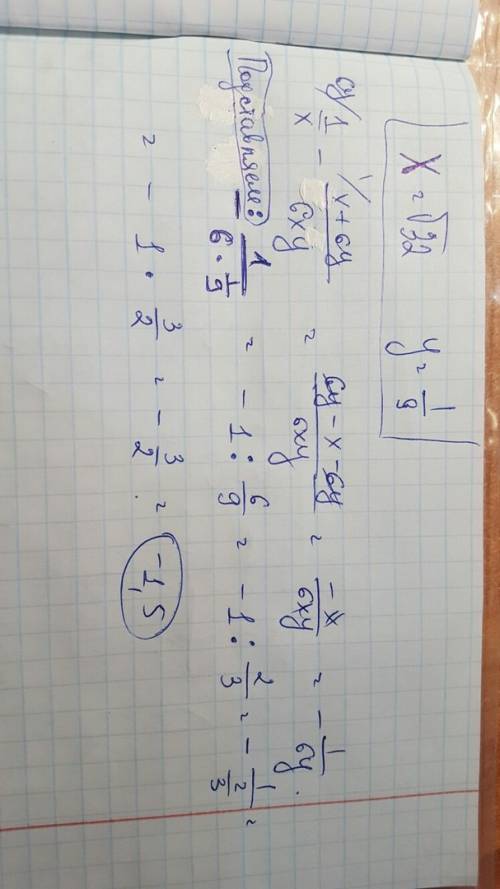 x = √32    y = 1/9
6y/ 1/x - 1/ x+6y/6xy = 6y-x-6y/6xy = -x/6xy = - 1/6y.
Подставляем: - 1/(6·1/9) = - 1 : 6/9 = - 1 : 2/3 = - 1/(2/3) =
= - 1 · 3/2 = - 3/2 = -1,5